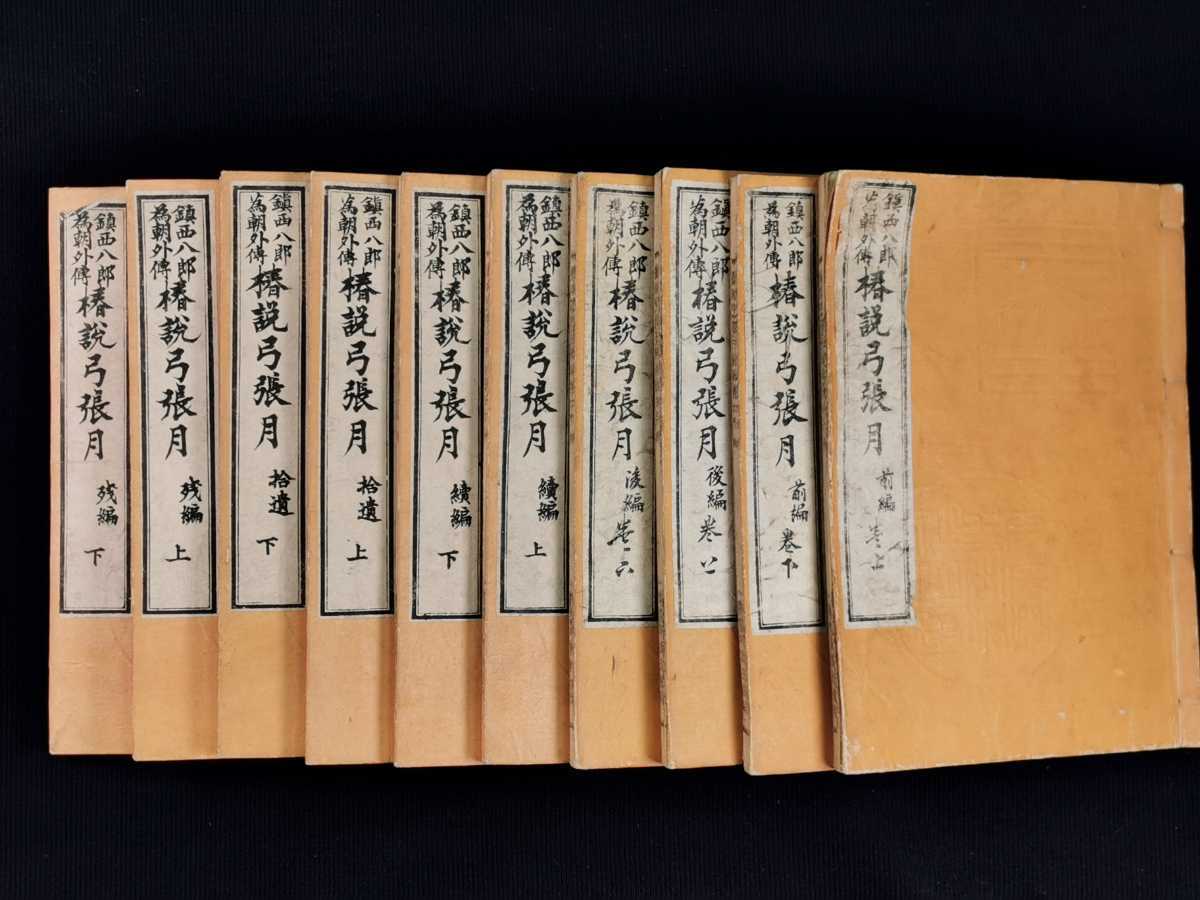 鎮西八郎
為朝外傳
椿説弓張月
前編
上
鎮西八郎
為朝外傳
椿説弓張月
前編
卷下
鎮西八郎
為朝外傳
椿説弓張月
後編
卷
鎮西八郎
為朝外傳
椿説弓張月
後編
鎮西八郎
為朝外傳
椿説弓張月
續編
上
鎮西八郎
為朝外傳
椿説弓張月
續編
下
鎮西八郎
為朝外傳
椿説弓張月
拾遺
上
鎮西八郎
為朝外傳
椿説弓張月
拾遺
下
鎮西八郎
為朝外傳
椿説弓張月
残編
上
鎮西八郎
為朝外傳
椿説弓張月
残編
下